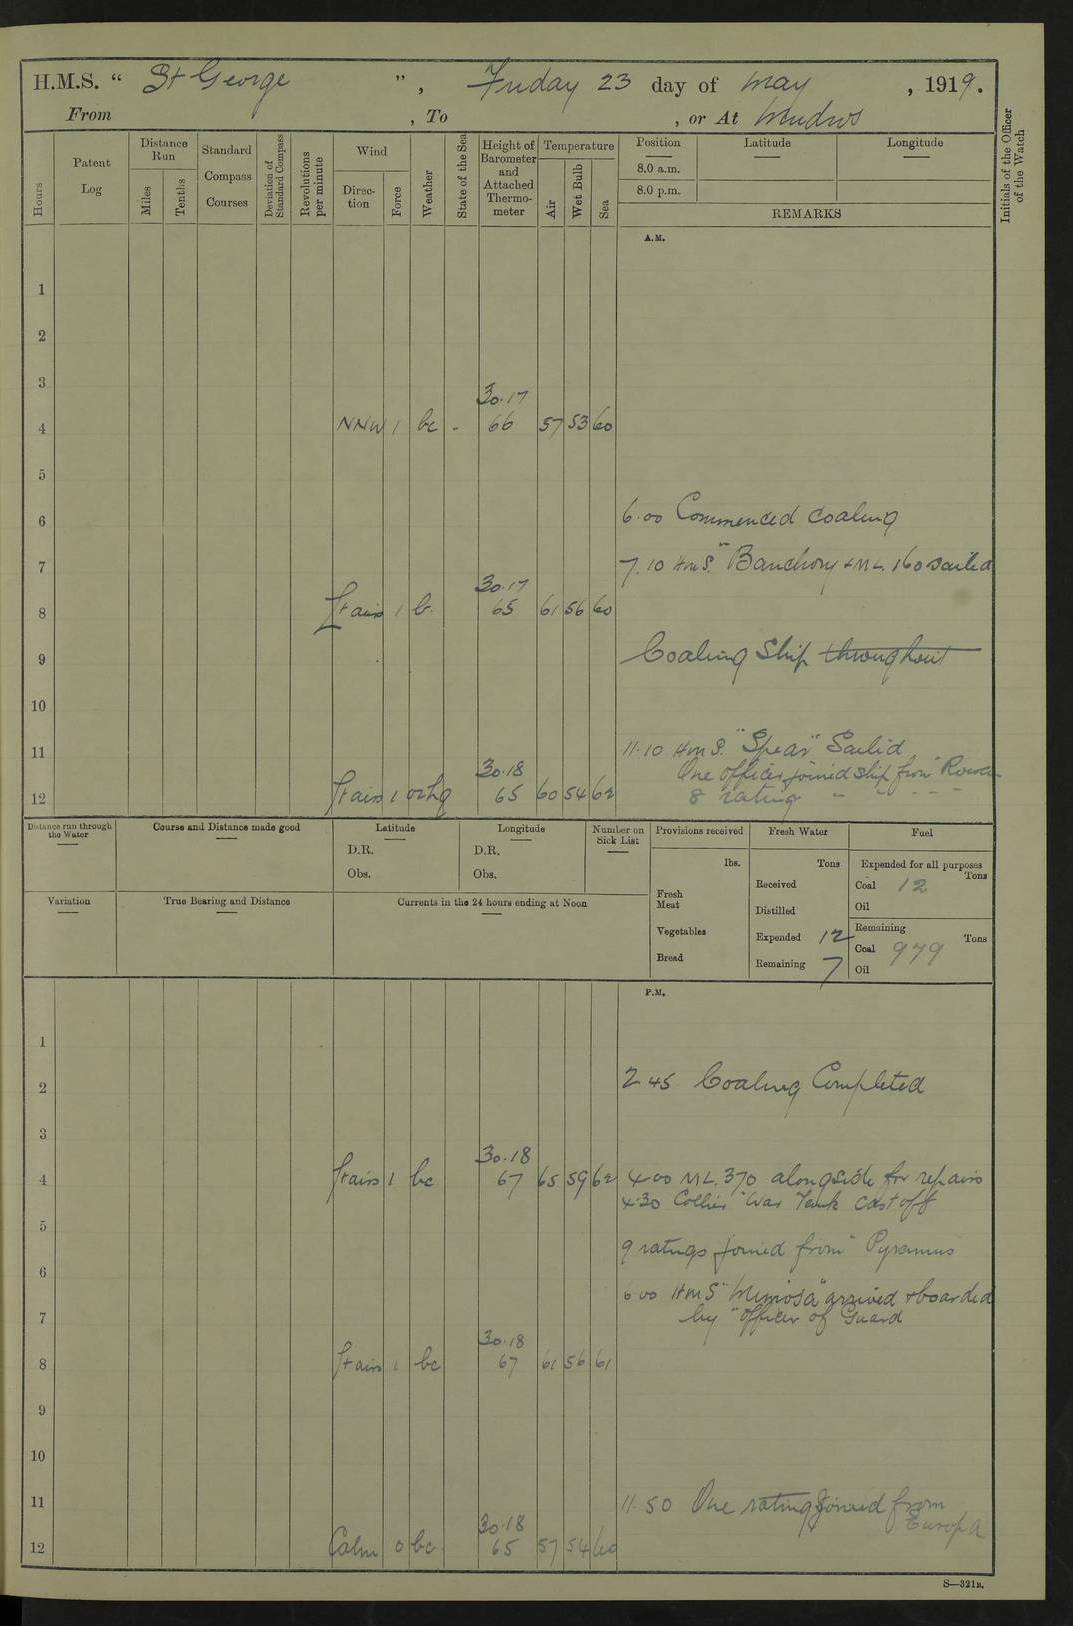 H.M.S. “ St George ”, Friday 23 day of May, 1919.
From , To , or At Mudros
Hours
Patent Log
Distance Run
Miles
Tenths
Standard Compass Courses
Deviation of Standard Compass
Revolutions per minute
Wind
Direction
Force
Weather
State of the Sea
Height of Barometer and Attached Thermometer
Temperature
Air
Wet Bulb
Sea
Position
8.0 a.m.
8.0 p.m.
Latitude
Longitude
REMARKS
Initials of the Officer of the Watch
A.M.
1
2
3
30.17
4 NNW 1 bc - 66 57 53 60
5
6 6.00 Commenced coaling
7 7.10 HMS. "Banchory & ML. 160 sailed
30.17
8 Airs 1 b. 65 61 56 60
9 Coaling Ship throughout
10
11 11.10 HMS. "Spear" Sailed
30.18 One officer joined ship from
12 airs 1 65 60 54 62 8 rating " " " "
Distance run through the Water
Course and Distance made good
Latitude
D.R.
Obs.
Longitude
D.R.
Obs.
Number on Sick List
Provisions received
lbs.
Fresh Meat
Vegetables
Bread
Fresh Water
Tons
Received
Distilled
Expended 12
Remaining 7
Fuel
Expended for all purposes
Tons
Coal 12
Oil
Remaining
Tons
Coal 979
Oil
Variation
True Bearing and Distance
Currents in the 24 hours ending at Noon
P.M.
1
2 2 45 Coaling Completed
3
30.18
4 airs 1 bc 67 65 59 62 4.00 ML. 370 alongside for repairs
4.30 Collier "War Tank cast off
5
9 ratings joined from "Pyramus
6
6 00 HMS "Mimosa" arrived & boarded
7 by "Officer of Guard
30.18
8 airs 1 bc 67 61 56 61
9
10
11 11.50 One rating joined from
30.18 Europa
12 Calm 0 bc 65 57 54 60
S—321B.